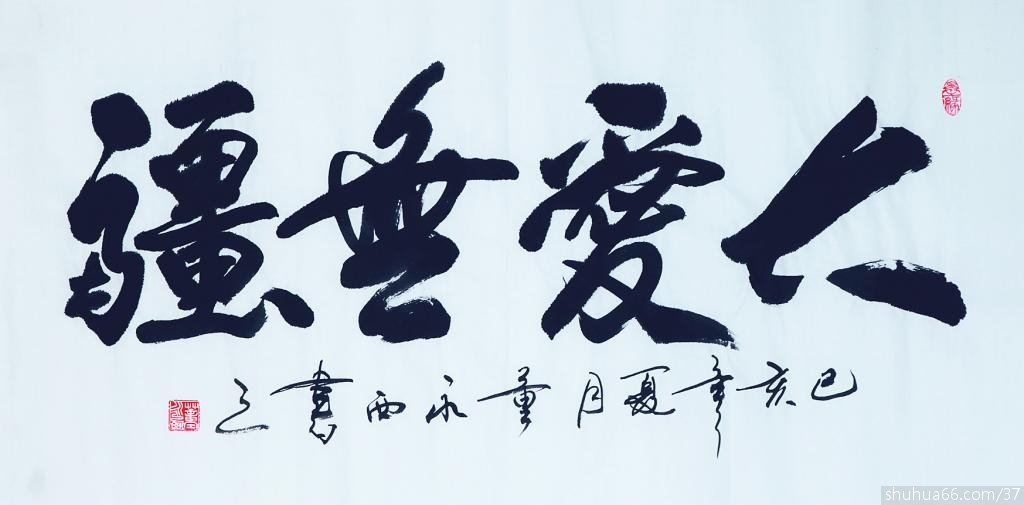 仁愛無疆
己亥年夏月董永西書之
shuhua66.com/37